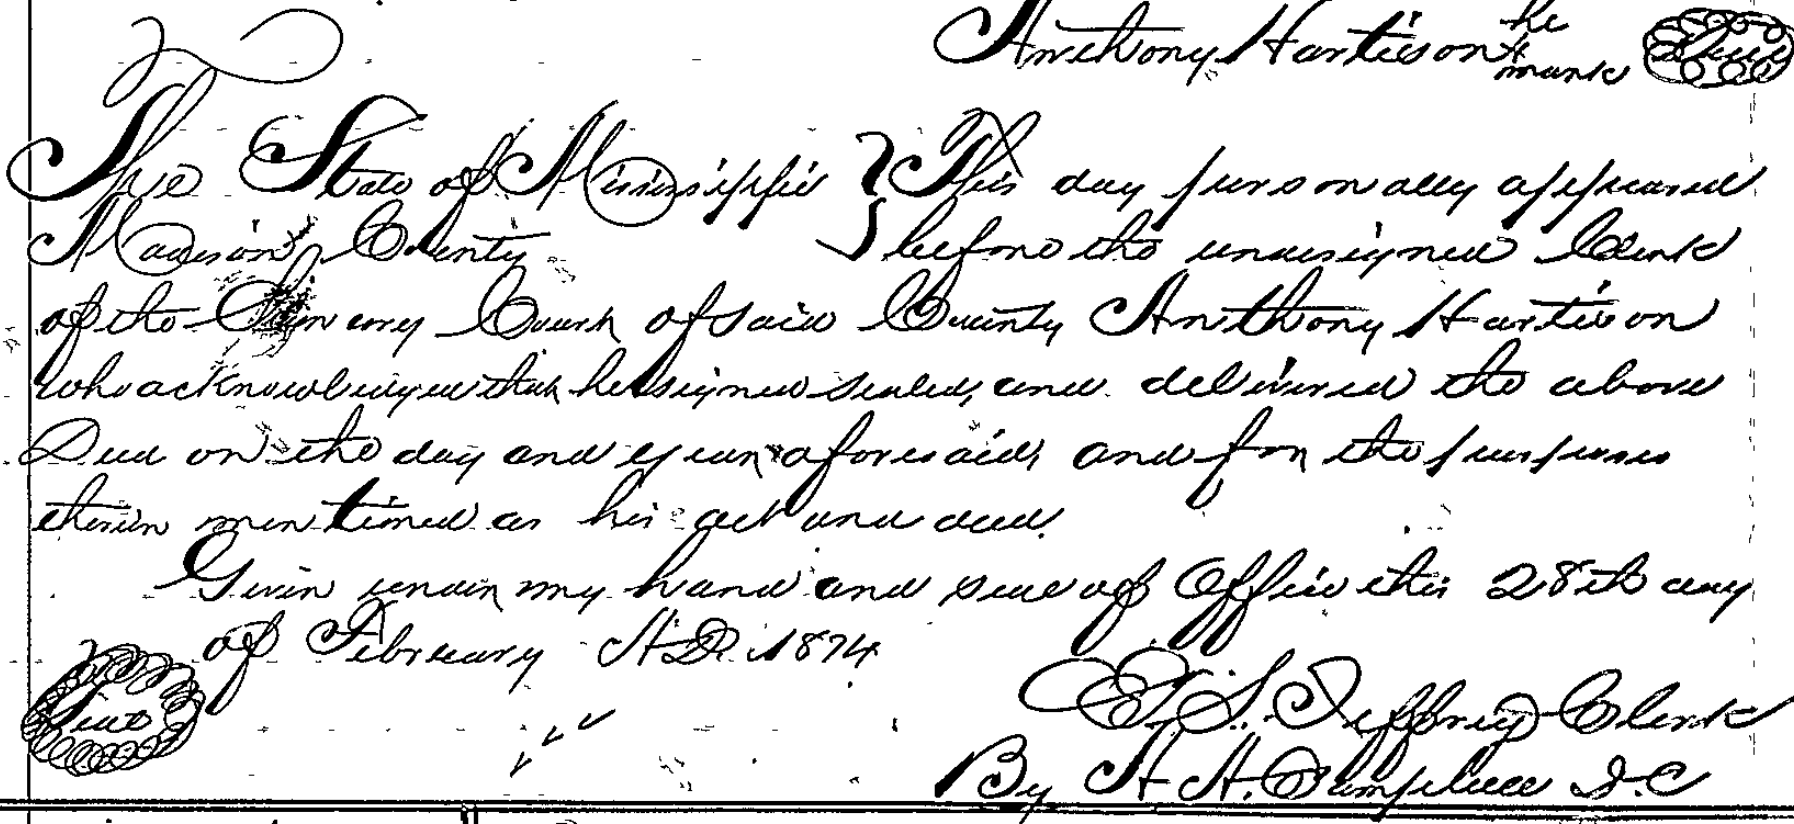 Anthony Hartison his X mark Seal
The State of Mississippi } This day personally appeared
Madison County } before the undersigned Clerk
of the Chancery Court of said County Anthony Hartison
who acknowledged that he signed sealed, and delivered the above
Deed on the day and year aforesaid, and for the purposes
therein mentioned as his act and deed.
Given under my hand and seal of Office this 28th day
of February A.D. 1874
Seal E. S. Jeffrey Clerk
By D.C